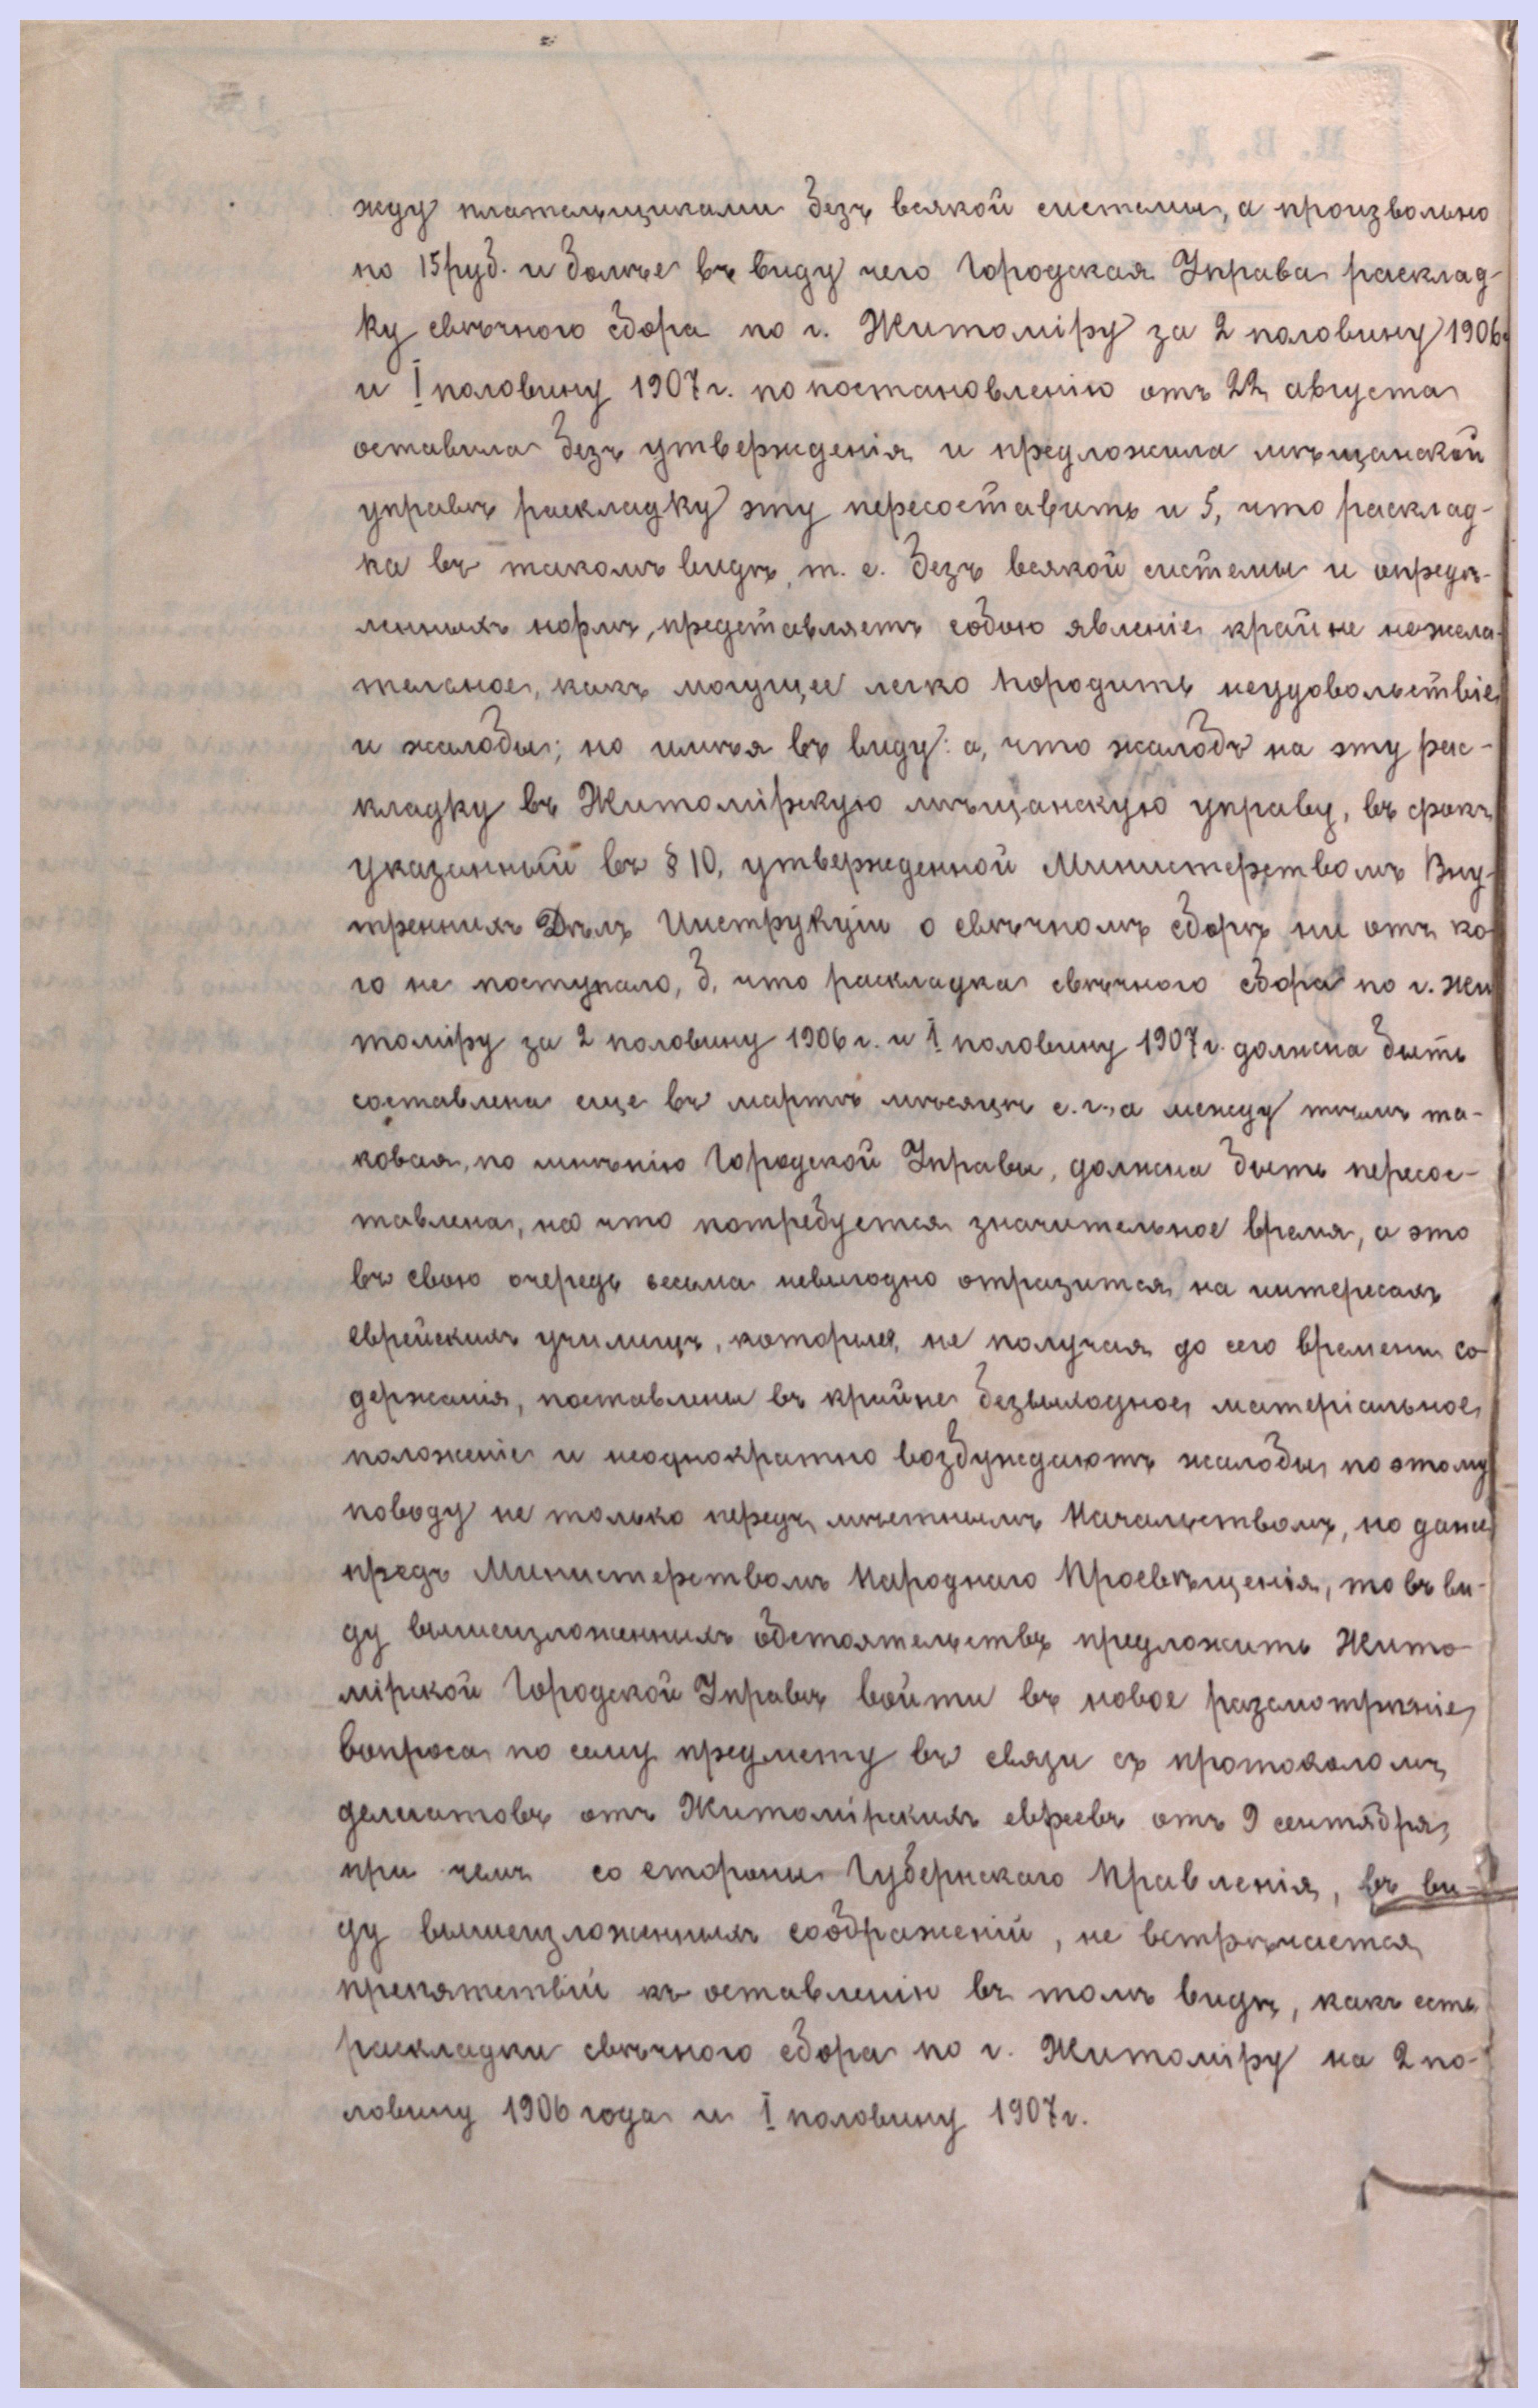 жду плательщиками безъ всякой системы, а произвольно
по 15 руб. и болѣе въ виду чего Городская Управа расклад-
ку свѣчного сбора по г. Житоміру за 2 половину 1906 г.
и I половину 1907 г. по постановленію отъ 22 августа
оставила безъ утвержденія и предложила мѣщанской
управѣ раскладку эту пересоставить и 5, что расклад-
ка въ такомъ видѣ, т. е. безъ всякой системы и опредѣ-
ленныхъ нормъ, представляетъ собою явленіе крайне нежела-
тельное, какъ могущее легко породить неудовольствіе
и жалобы; но имѣя въ виду: а, что жалобъ на эту рас-
кладку въ Житомірскую мѣщанскую управу, въ срокъ
указанный въ § 10, утвержденной Министерствомъ Вну-
тренних Дѣлъ Инструкціи о свѣчномъ сборѣ ни отъ ко-
го не поступало, б, что раскладка свѣчного сбора по г. Жи
томіру за 2 половину 1906 г. и I половину 1907 г. должна быть
составлена еще въ мартѣ мѣсяцѣ с. г., а между тѣмъ та-
ковая, по мнѣнію Городской Управы, должна быть пересос-
тавлена, на что потребуется значительное время, а это
въ свою очередь весьма невыгодно отразится на интересахъ
еврейскихъ училищъ, которыя, не получая до сего времени со-
держанія, поставлены въ крайне безвыходное матеріальное
положеніе и неоднократно возбуждаютъ жалобы по этому
поводу не только передъ мѣстнымъ Начальствомъ, но даже
предъ Министерствомъ Народнаго Просвѣщенія, то въ ви-
ду вышеизложенныхъ обстоятельствъ предложить Жито-
мірской Городской Управѣ войти въ новое разсмотрѣніе
вопроса по сему предмету въ связи съ протоколомъ
делегатовъ отъ Житомірскихъ евреевъ отъ 9 сентября,
при чемъ со стороны Губернскаго Правленія, въ ви-
ду вышеизложенныхъ соображеній, не встрѣчается
препятствій къ оставленію въ томъ видѣ, какъ есть
раскладки свѣчного сбора по г. Житоміру на 2 по-
ловину 1906 года и I половину 1907 г.